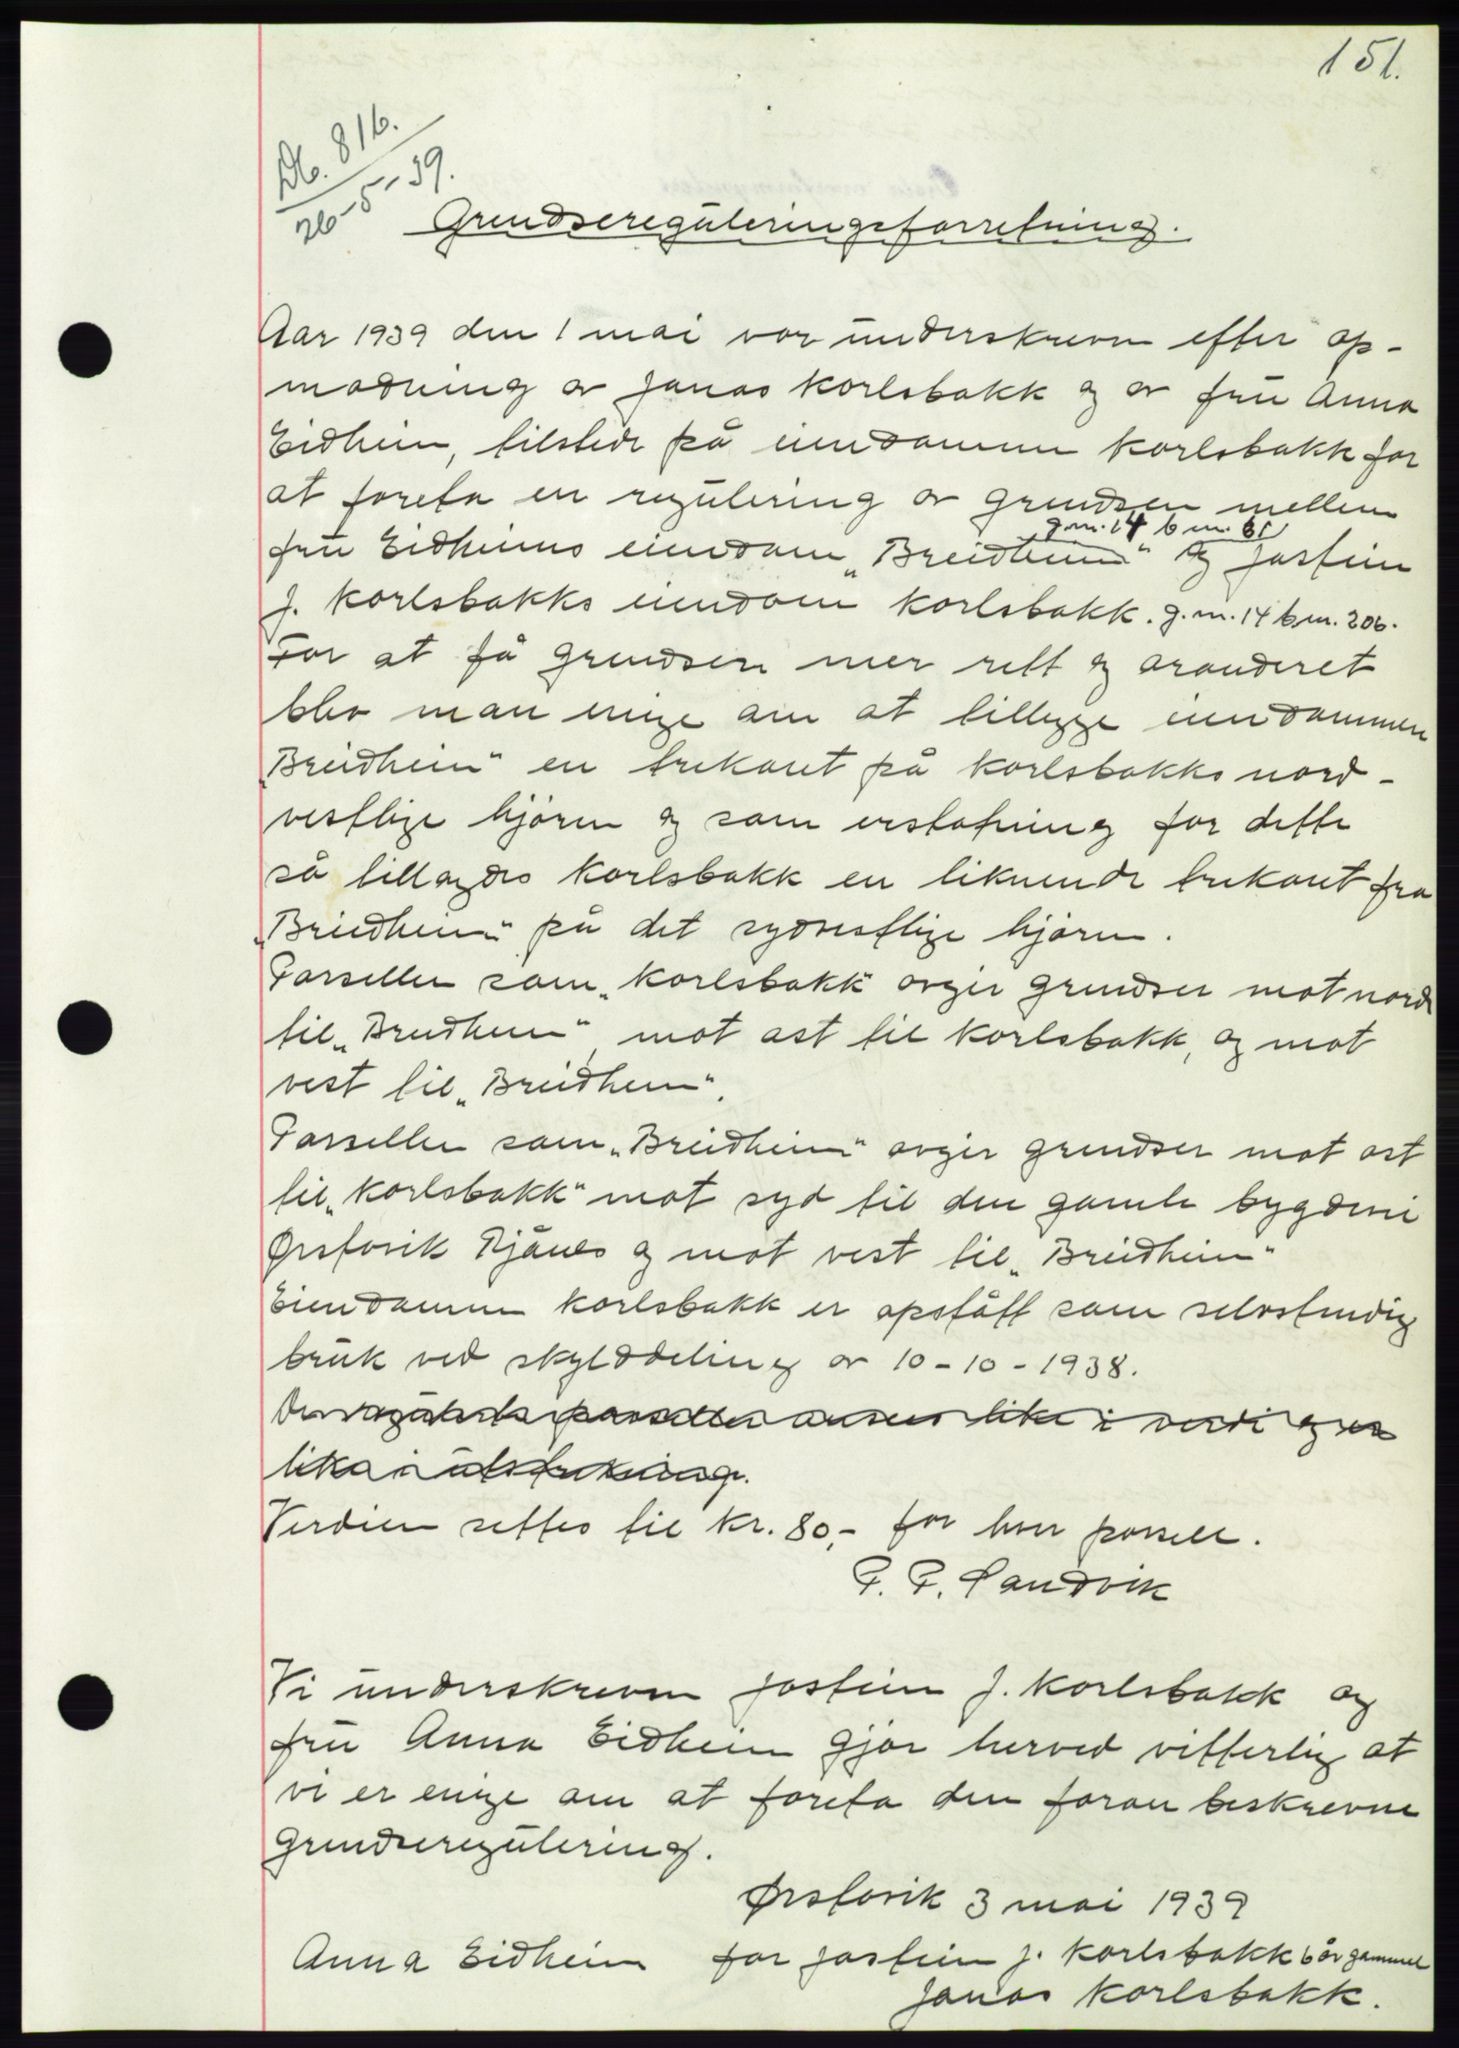 151.
Db. 816.
26-5-39.
Grendsereguleringsforretning.
Aar 1939 den 1 mai var underskrevne efter op-
modning av Jonas Korlsbakk og av fru Anna
Eidheim, tilstede på eiendommen Korlsbakk for
at foreta en regulering av grendsen mellem
g.nr. 14 b.nr. 61
fru Eidheims eiendom „Breidheim" og Jostein
J. Korlsbakks eiendom Korlsbakk. g.nr. 14 b.nr. 206.
For at få grendsen mer rett og aronderet
blev man enige om at tillegge eiendommen
„Breidheim" en trekant på Korlsbakks nord-
vestlige hjørne og som erstatning for dette
så tillagdes Korlsbakk en liknende trekant fra
„Breidheim" på det sydvestlige hjørne.
Parsellen som „Korlsbakk" avgir grendser mot nord
til „Breidheim", mot ost til Korlsbakk, og mot
vest til „Breidheim".
Parsellen som „Breidheim" avgir grendser mot ost
til „Korlsbakk" mot syd til den gamle bygdevei
Ørstavik Rjånes og mot vest til „Breidheim"
Eiendommen Korlsbakk er opstått som selvstendig
bruk ved skylddeling av 10-10-1938.
parseller ansees like i verdi og er
like i utstrekning.
Verdien settes til kr. 80,- for hver parsell.
P. P. Sandvik
Vi underskrevne Jostein J. Korlsbakk og
fru Anna Eidheim gjør herved vitterlig at
vi er enige om at foreta den foran beskrevne
Grendseregulering.
Ørstavik 3 mai 1939
Anna Eidheim for Jostein J. Korlsbakk 6 år gammel
Jonas Korlsbakk.